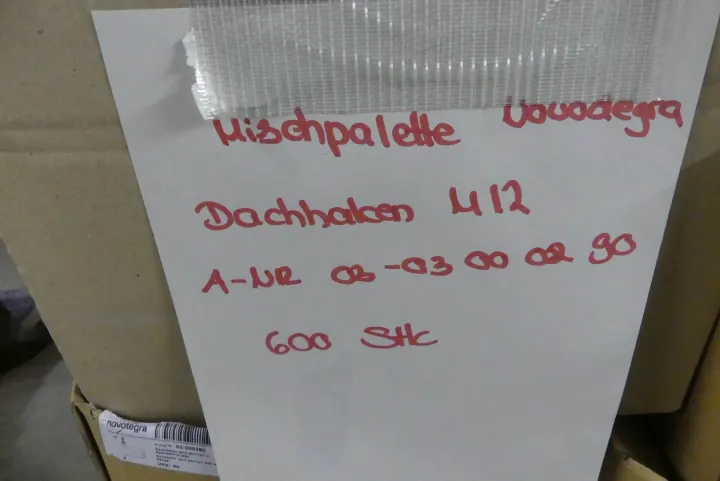 Mischpalette Novotegra
Dachhaken M12
A-NR 03-03 00 02 90
600 Stk
novotegra